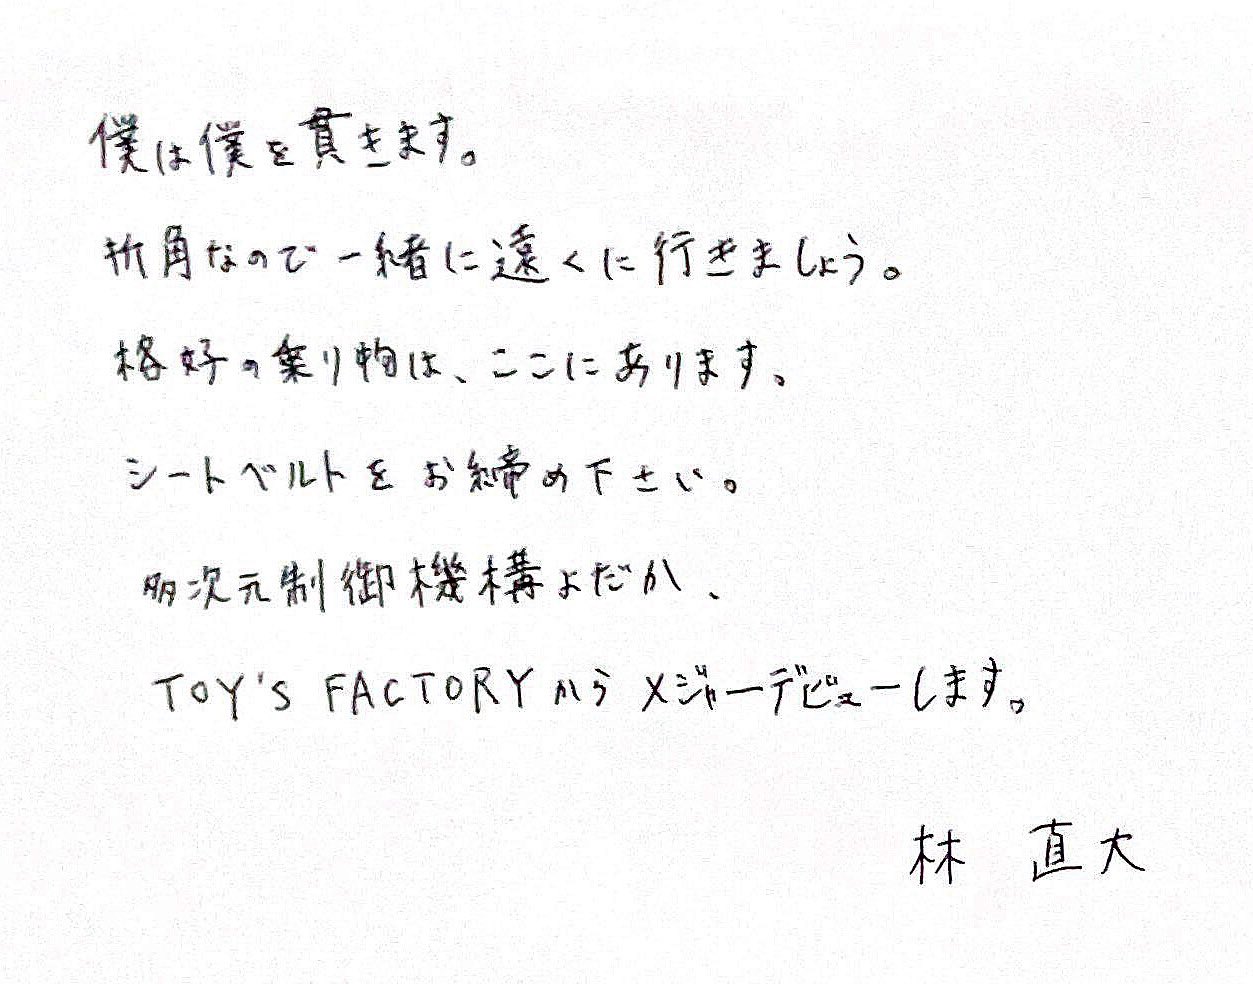 僕は僕を貫きます。
折角なので一緒に遠くに行きましょう。
格好の乗り物は、ここにあります。
シートベルトをお締め下さい。
多次元制御機構よだか、
TOY's FACTORYからメジャーデビューします。
林 直大